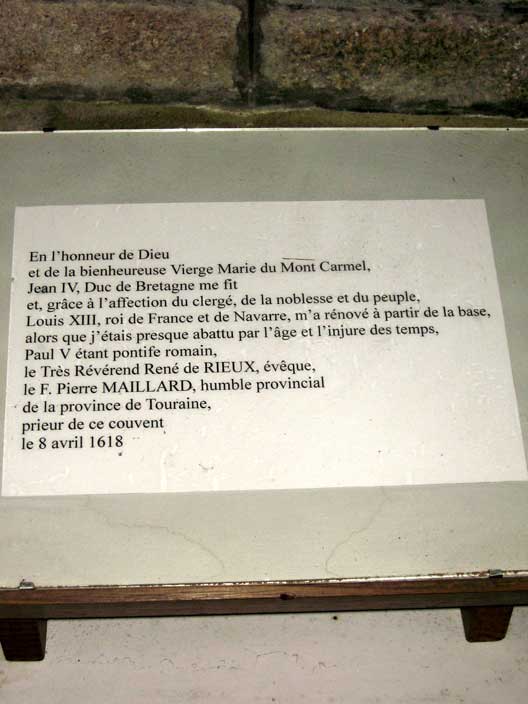 En l'honneur de Dieu
et de la bienheureuse Vierge Marie du Mont Carmel,
Jean IV, Duc de Bretagne me fit
et, grâce à l'affection du clergé, de la noblesse et du peuple,
Louis XIII, roi de France et de Navarre, m'a rénové à partir de la base,
alors que j'étais presque abattu par l'âge et l'injure des temps,
Paul V étant pontife romain,
le Très Révérend René de RIEUX, évêque,
le F. Pierre MAILLARD, humble provincial
de la province de Touraine,
prieur de ce couvent
le 8 avril 1618